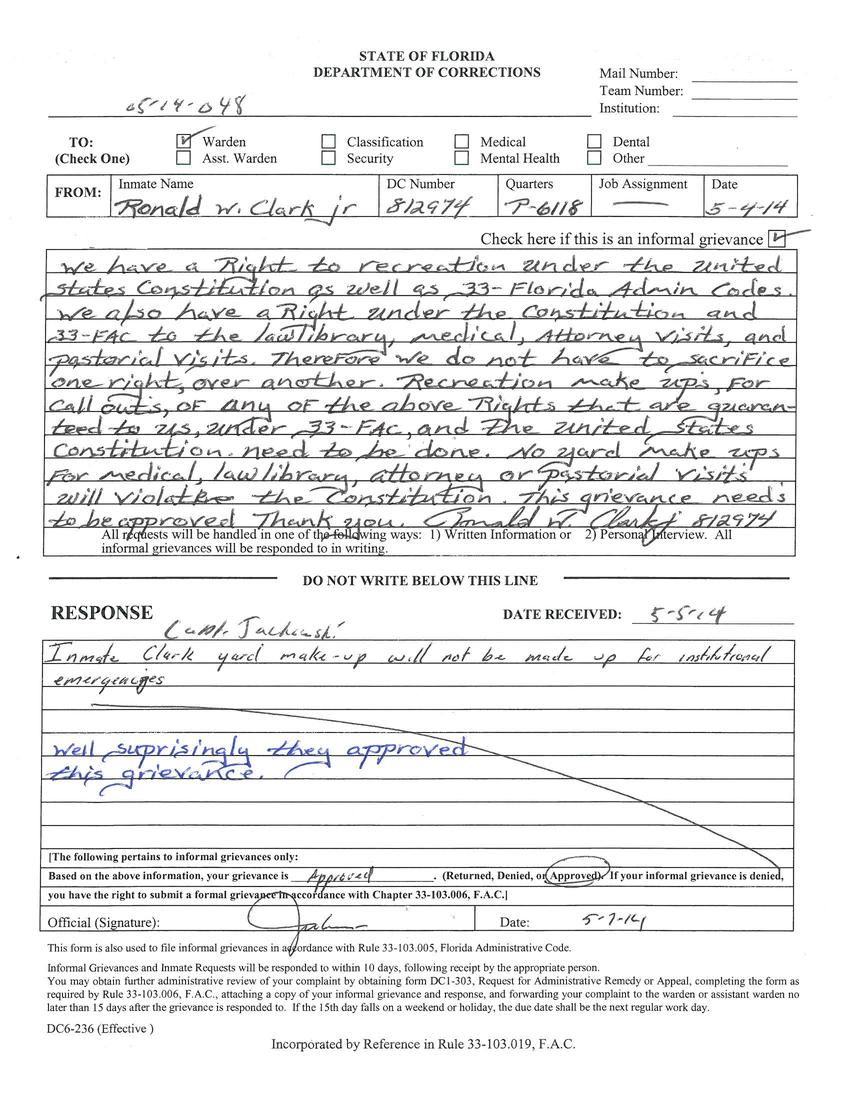 STATE OF FLORIDA
DEPARTMENT OF CORRECTIONS
Mail Number:
Team Number:
Institution:
05-14-048
TO:
(Check One)
Warden
Classification
Medical
Dental
Asst. Warden
Security
Mental Health
Other
FROM:
Inmate Name
DC Number
Quarters
Job Assignment
Date
Ronald W. Clark jr
812974
P-6118
5-4-14
Check here if this is an informal grievance
We have a Right to recreation under the united
states Constitution as well as 33-Florida Admin Codes.
We also have a Right under the Constitution and
33-FAC to the law library, medical, Attorney Visits, and
pastorial Visits. Therefore we do not have to sacrifice
one right, over another. Recreation make ups, For
Call outs, of any of the above Rights that are guaran-
teed to us, under 33-FAC, and the united States
Constitution. need to be done. No yard make ups
For medical, law library, attorney or pastorial visits
will violate the Constitution. This grievance needs
to be approved Thank you. Ronald W. Clark jr 812974
All requests will be handled in one of the following ways: 1) Written Information or 2) Personal Interview. All
informal grievances will be responded to in writing.
DO NOT WRITE BELOW THIS LINE
RESPONSE
DATE RECEIVED: 5-5-14
Capt.
Inmate Clark yard make-up will not be made up for institutional
emergencies
Well suprisingly they approved
this grievance.
[The following pertains to informal grievances only:
Based on the above information, your grievance is Approved. (Returned, Denied, or Approved). If your informal grievance is denied,
you have the right to submit a formal grievance in accordance with Chapter 33-103.006, F.A.C.]
Official (Signature):
Date: 5-7-14
This form is also used to file informal grievances in accordance with Rule 33-103.005, Florida Administrative Code.
Informal Grievances and Inmate Requests will be responded to within 10 days, following receipt by the appropriate person.
You may obtain further administrative review of your complaint by obtaining form DC1-303, Request for Administrative Remedy or Appeal, completing the form as
required by Rule 33-103.006, F.A.C., attaching a copy of your informal grievance and response, and forwarding your complaint to the warden or assistant warden no
later than 15 days after the grievance is responded to. If the 15th day falls on a weekend or holiday, the due date shall be the next regular work day.
DC6-236 (Effective )
Incorporated by Reference in Rule 33-103.019, F.A.C.